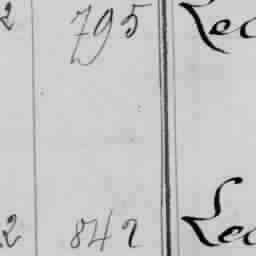 2 795 Leo
2 842 Leo